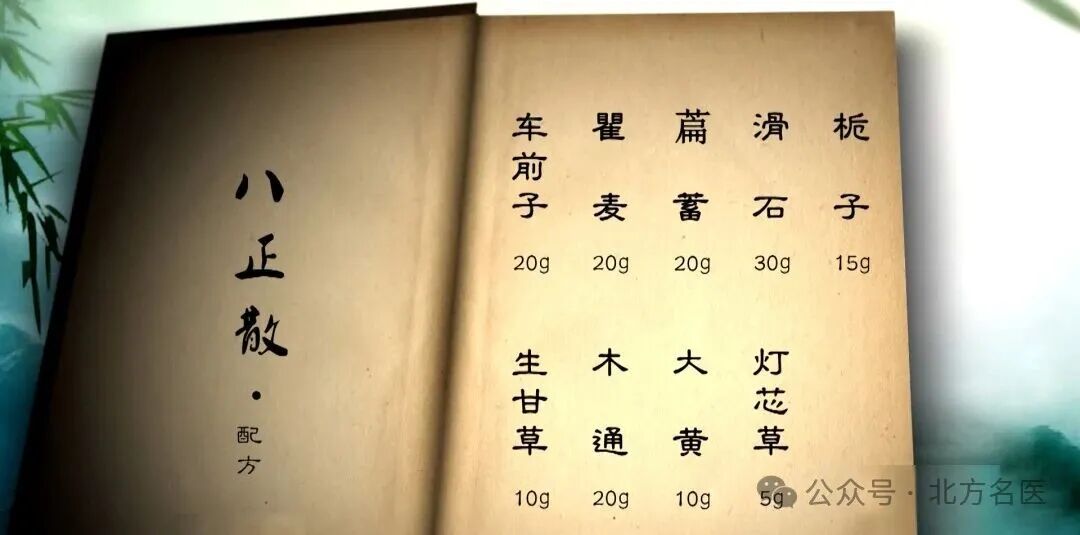 八正散·配方
车前子 瞿麦 萹蓄 滑石 栀子
20g 20g 20g 30g 15g
生甘草 木通 大黄 灯芯草
10g 20g 10g 5g
公众号·北方名医